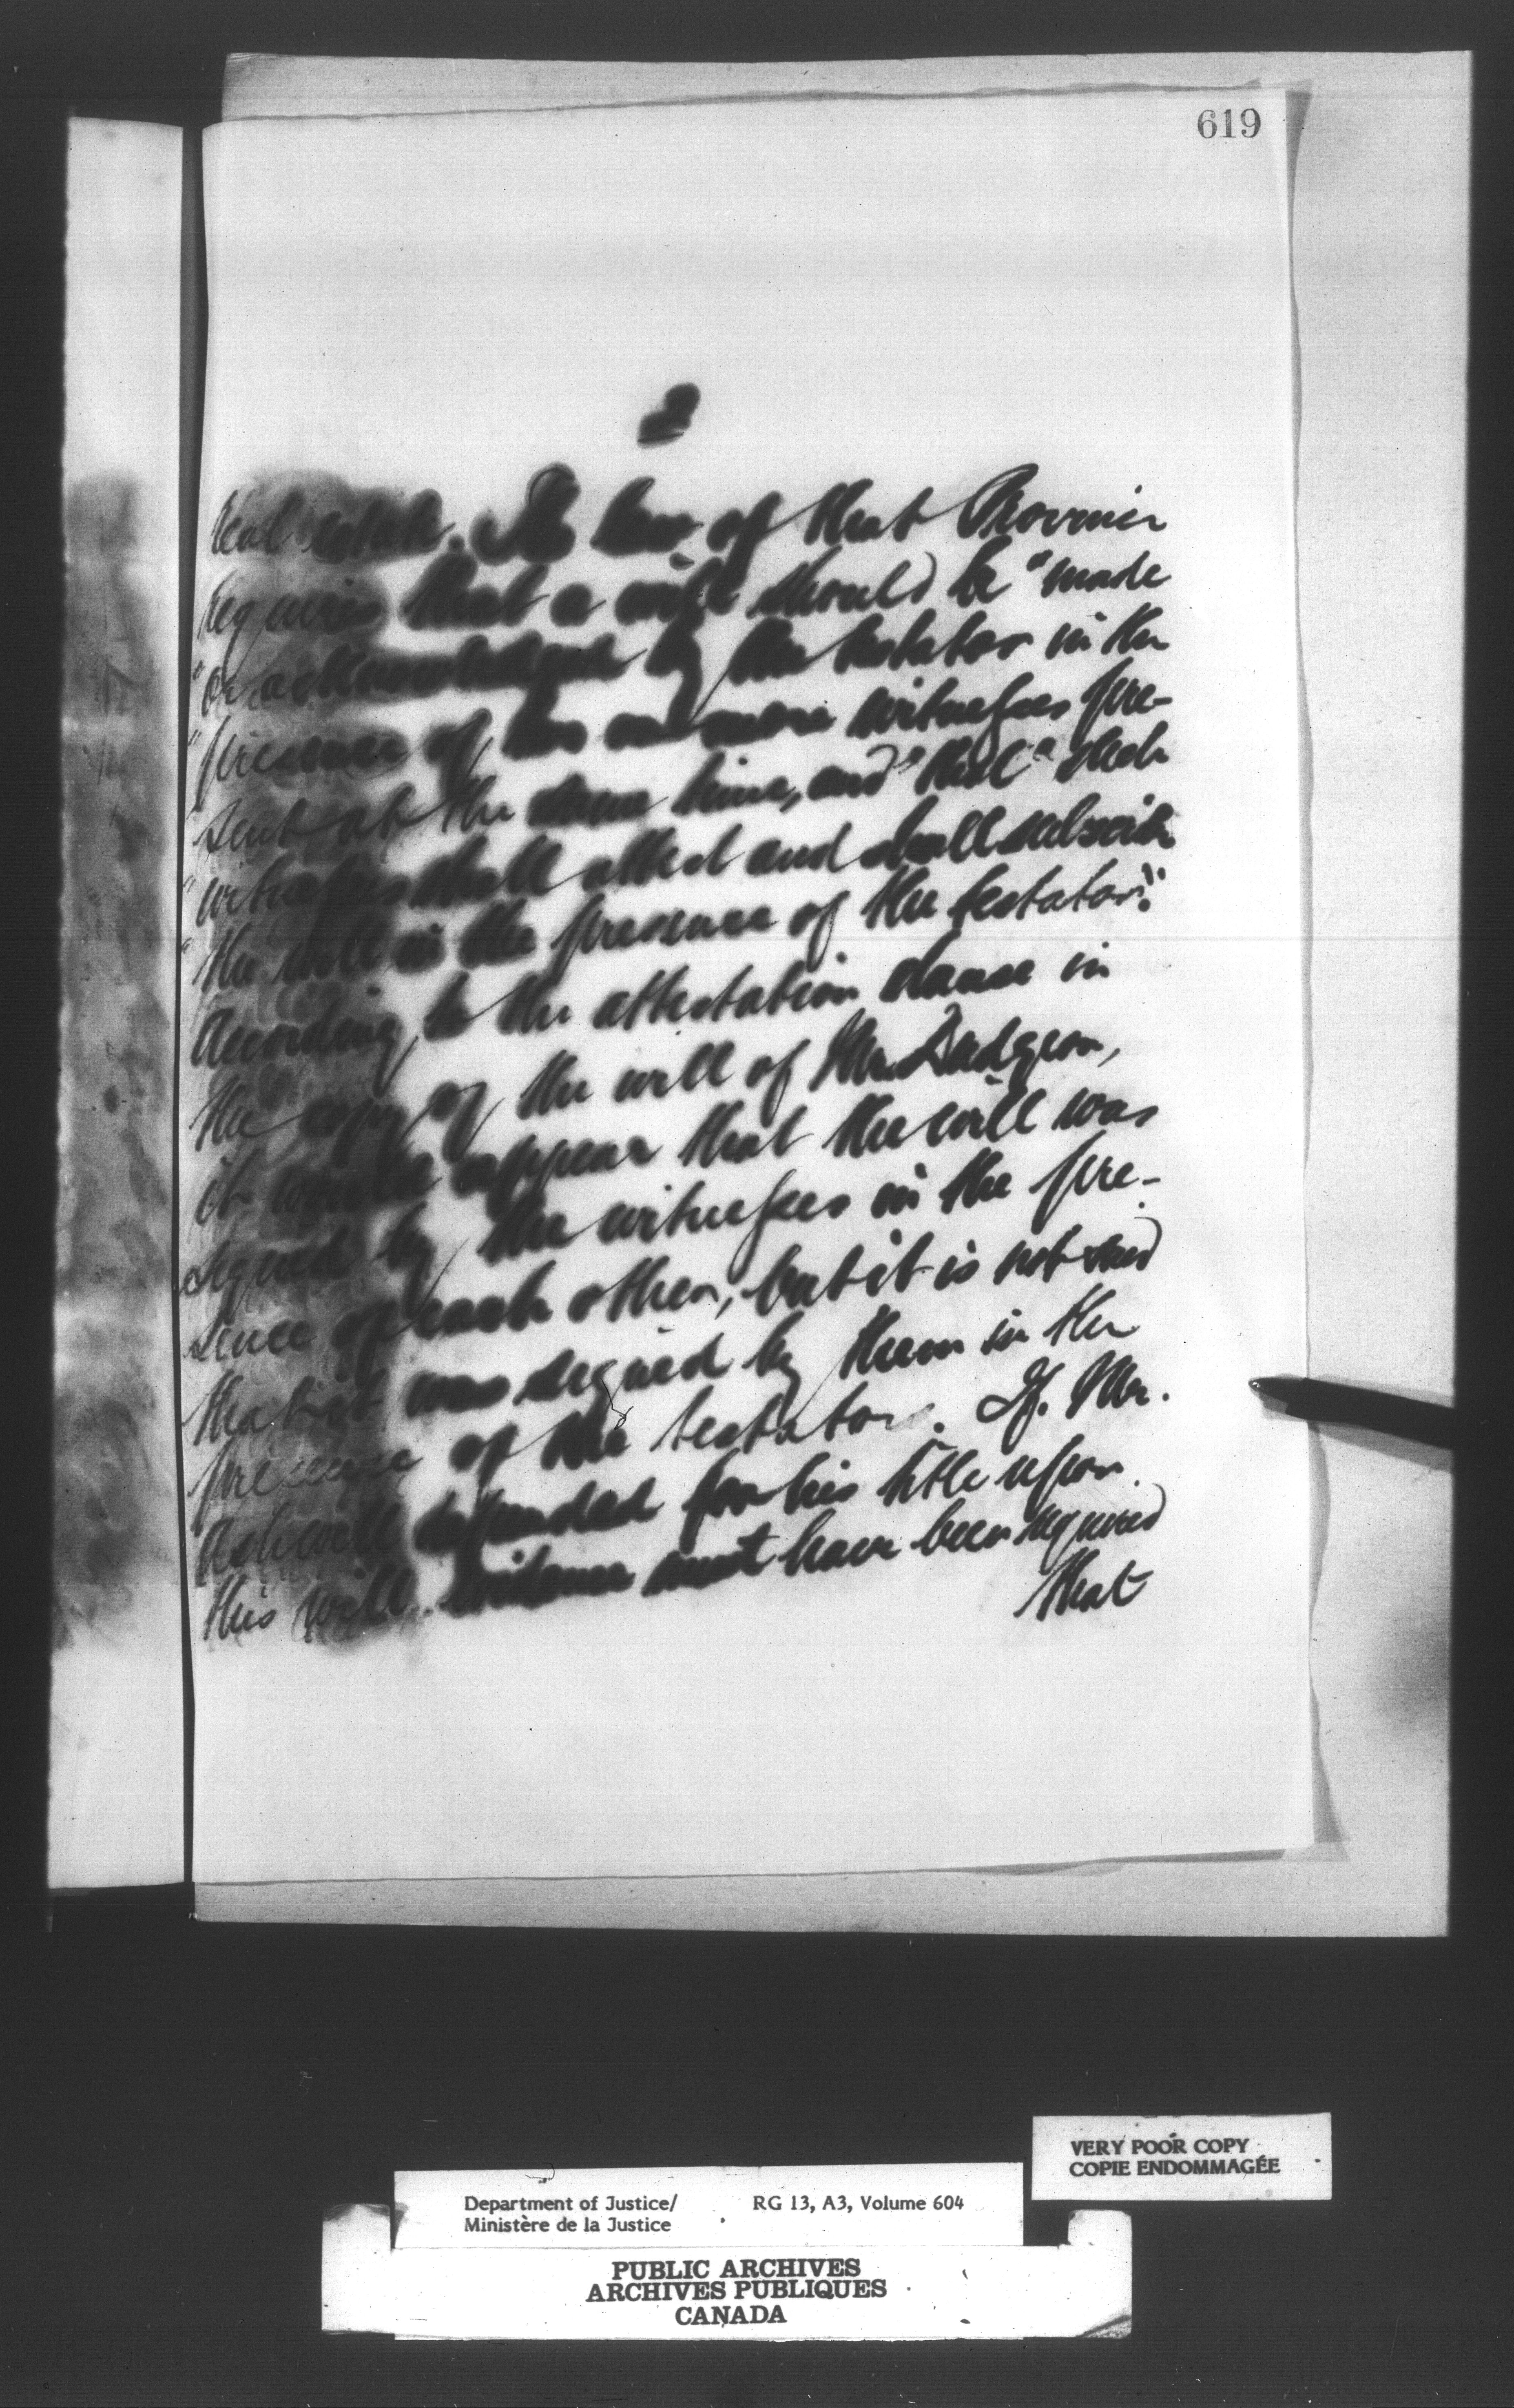 619
2
real estate. The law of that Province
requires that a will should be "made
"or acknowledged by the testator in the
"presence of two or more witnesses pre-
"sent at the same time, and" that "such
"witnesses shall attest and shall subscribe
"the will in the presence of the testator."
According to the attestation clause in
the copy of the will of Mr. Dudgeon,
it would appear that the will was
signed by the witnesses in the pre-
sence of each other, but it is not said
that it was signed by them in the
presence of the testator. If Mr.
Ashwell depended for his title upon
this will evidence must have been required
that
VERY POOR COPY
COPIE ENDOMMAGÉE
Department of Justice/ RG 13, A3, Volume 604
Ministère de la Justice
PUBLIC ARCHIVES
ARCHIVES PUBLIQUES
CANADA